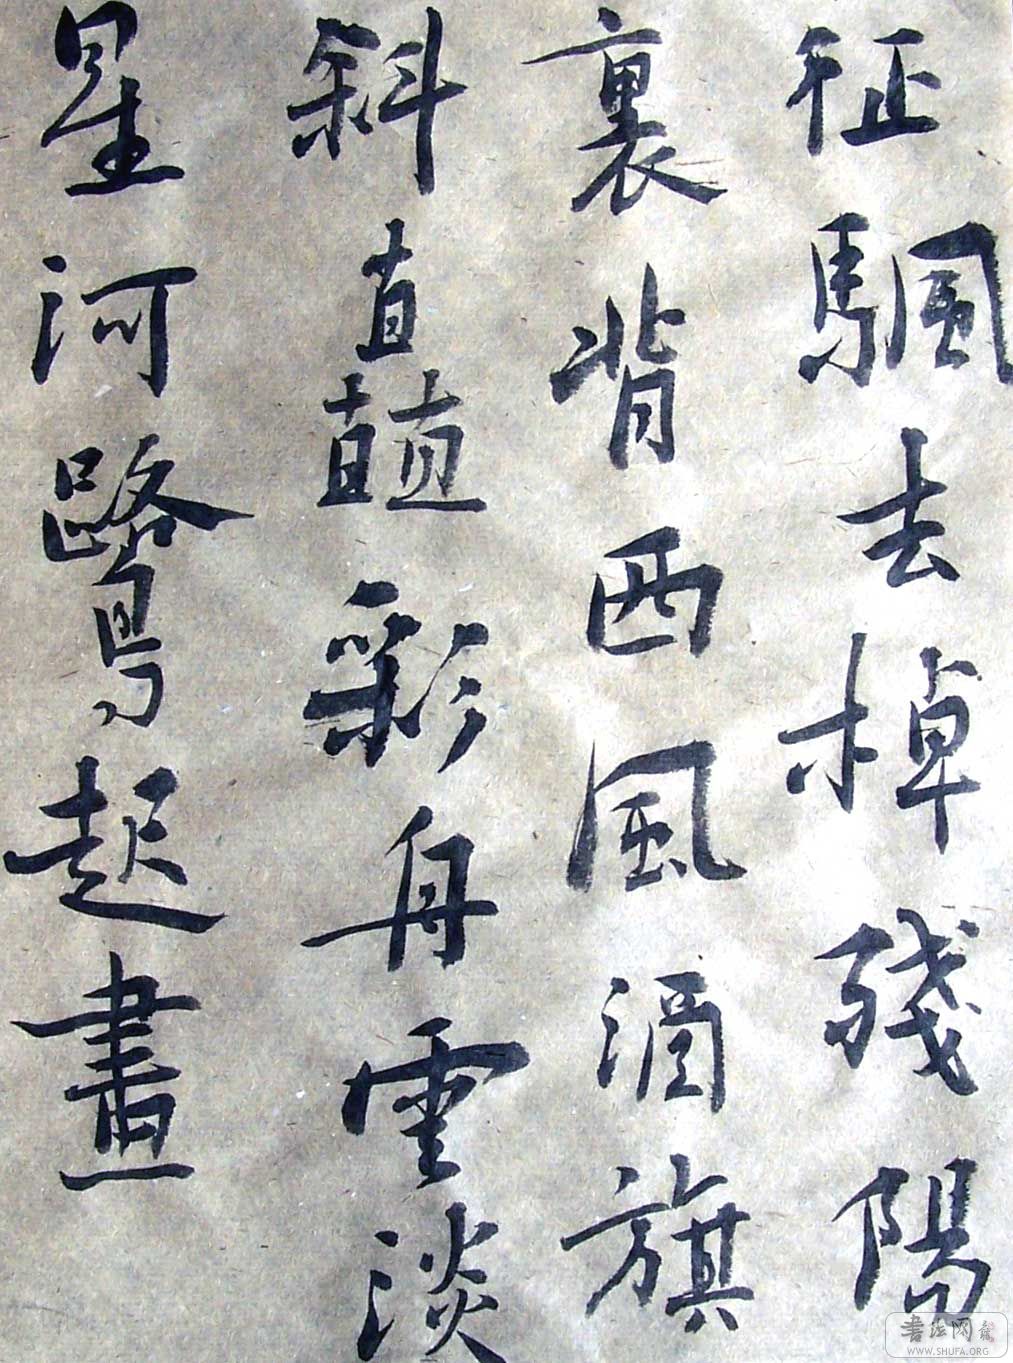 征颿去棹殘陽
裏背西風酒旗
斜矗彩舟雲淡
星河鷺起畫
書法网
WWW.SHUFA.ORG